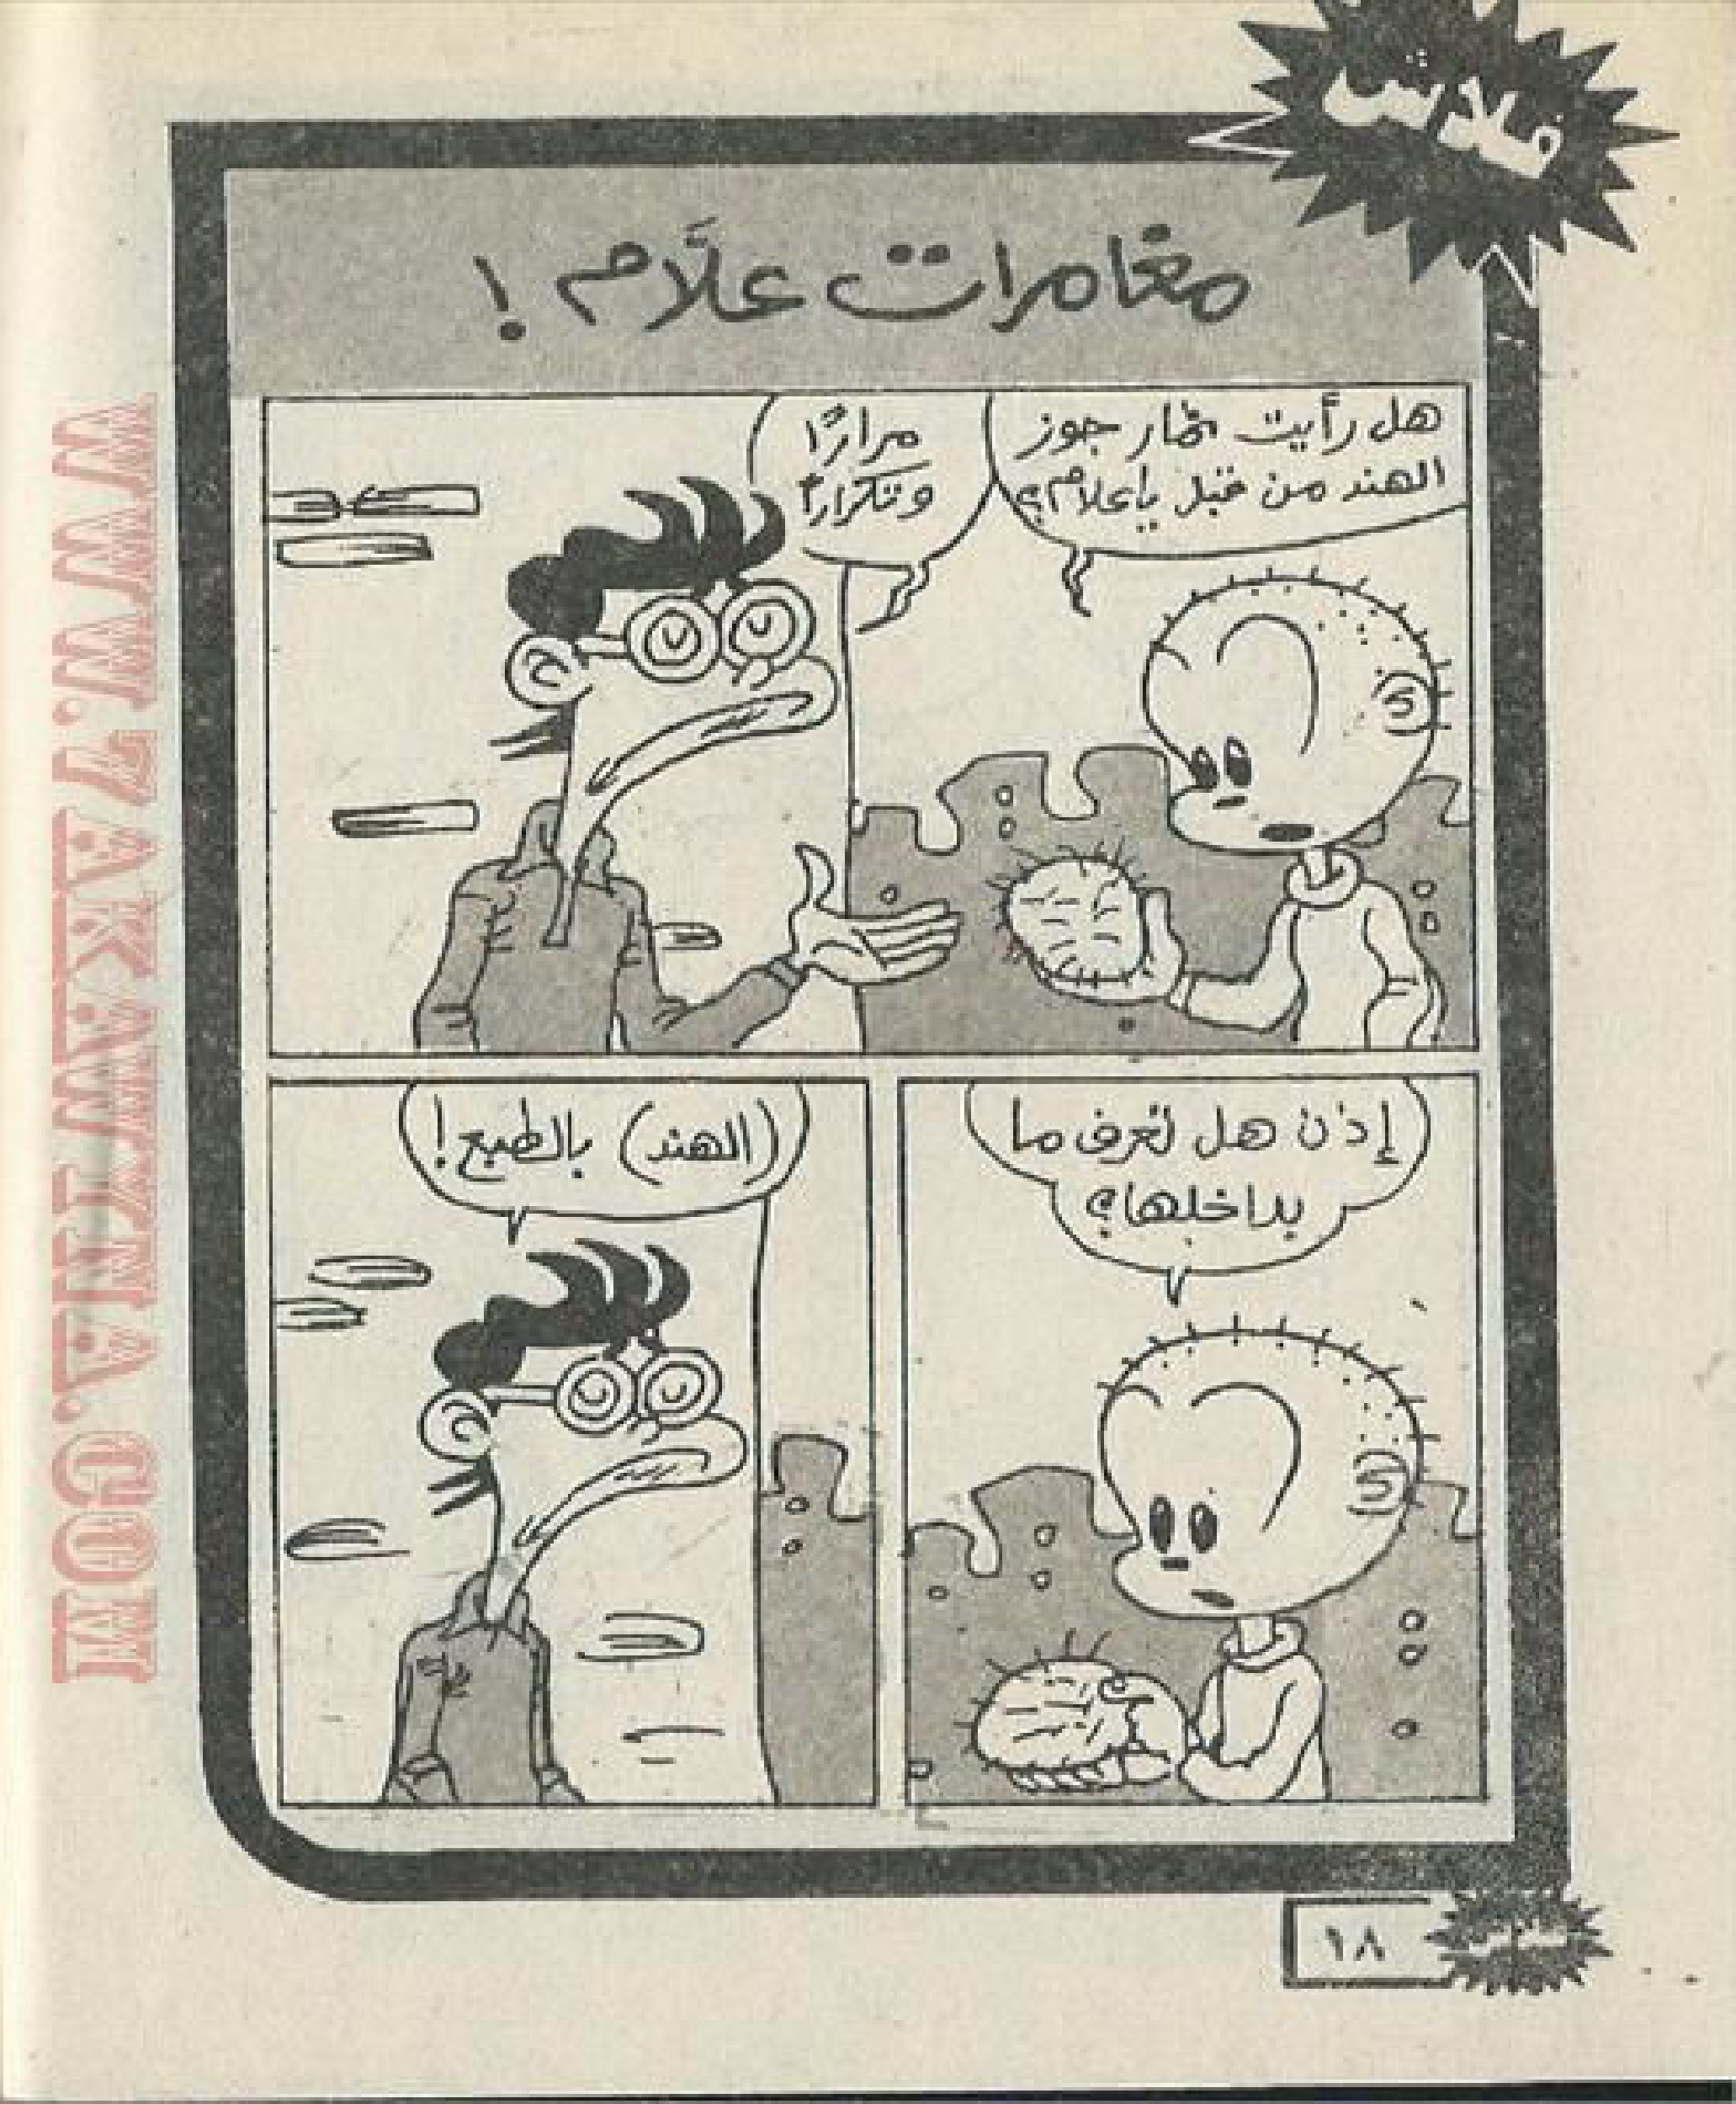 فلاش
مغامرات علَّام !
هل رأيت ثمار جوز
الهند من قبل يا علام؟
مرارًا
وتكرارًا
إذن هل تعرف ما
بداخلها؟
(الهند) بالطبع!
١٨
WWW.7AKAWATNA.COM